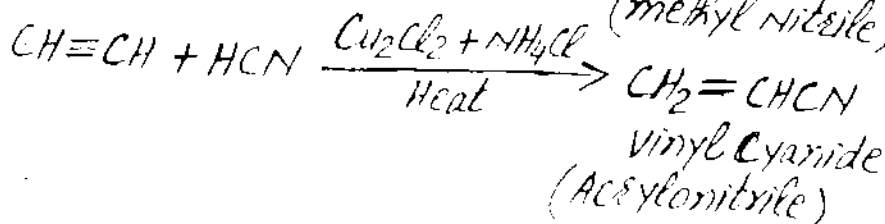 (methyl Nitrile)
CH≡CH + HCN Cu2Cl2 + NH4Cl → CH2=CHCN
Heat
Vinyl Cyanide
(Acrylonitrile)